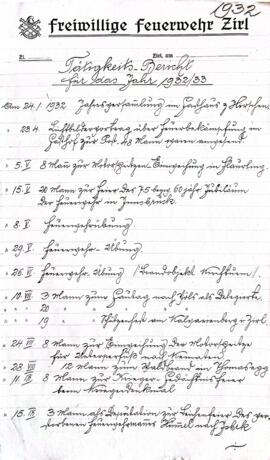 1932
freiwillige Feuerwehr Zirl
Zl. Zirl, am
Tätigkeits-Bericht
für das Jahr 1932/33
Am 24./1 1932 Jahresversammlung im Gasthaus z. Hirschen
" 23.4. Lichtbildervortrag über Feuerbekämpfung im
Gasthof zur Post. 48 Mann waren anwesend
" 5. V 8 Mann zur Motorspritzen-Einweihung in
" 15. V 20 Mann zur Feier des 75 bezw. 60 jähr. Jubiläum
der Feuerwehr in Innsbruck.
" 8. V Feuerwehrübung
" 29. V Feuerwehr-Übung
" 26. V Feuerwehr-Übung (Brandobjekt
" 10. VII 3 Mann zum Gautag nach als Delegierte
" 20 "
" 19 " am Kalvarienberg Zirl
" 24. VII 8 Mann zur Einweihung der Motorspritze
für nach Kematen
" 28. VIII 12 Mann zum Waldbrand am
" 11. IX 8 Mann zur Krieger-Gedächtnisfeier
beim Kriegerdenkmal
" 15. IX 3 Mann als Deputation zur Leichenfeier des ver-
storbenen Feuerwehrmannes nach